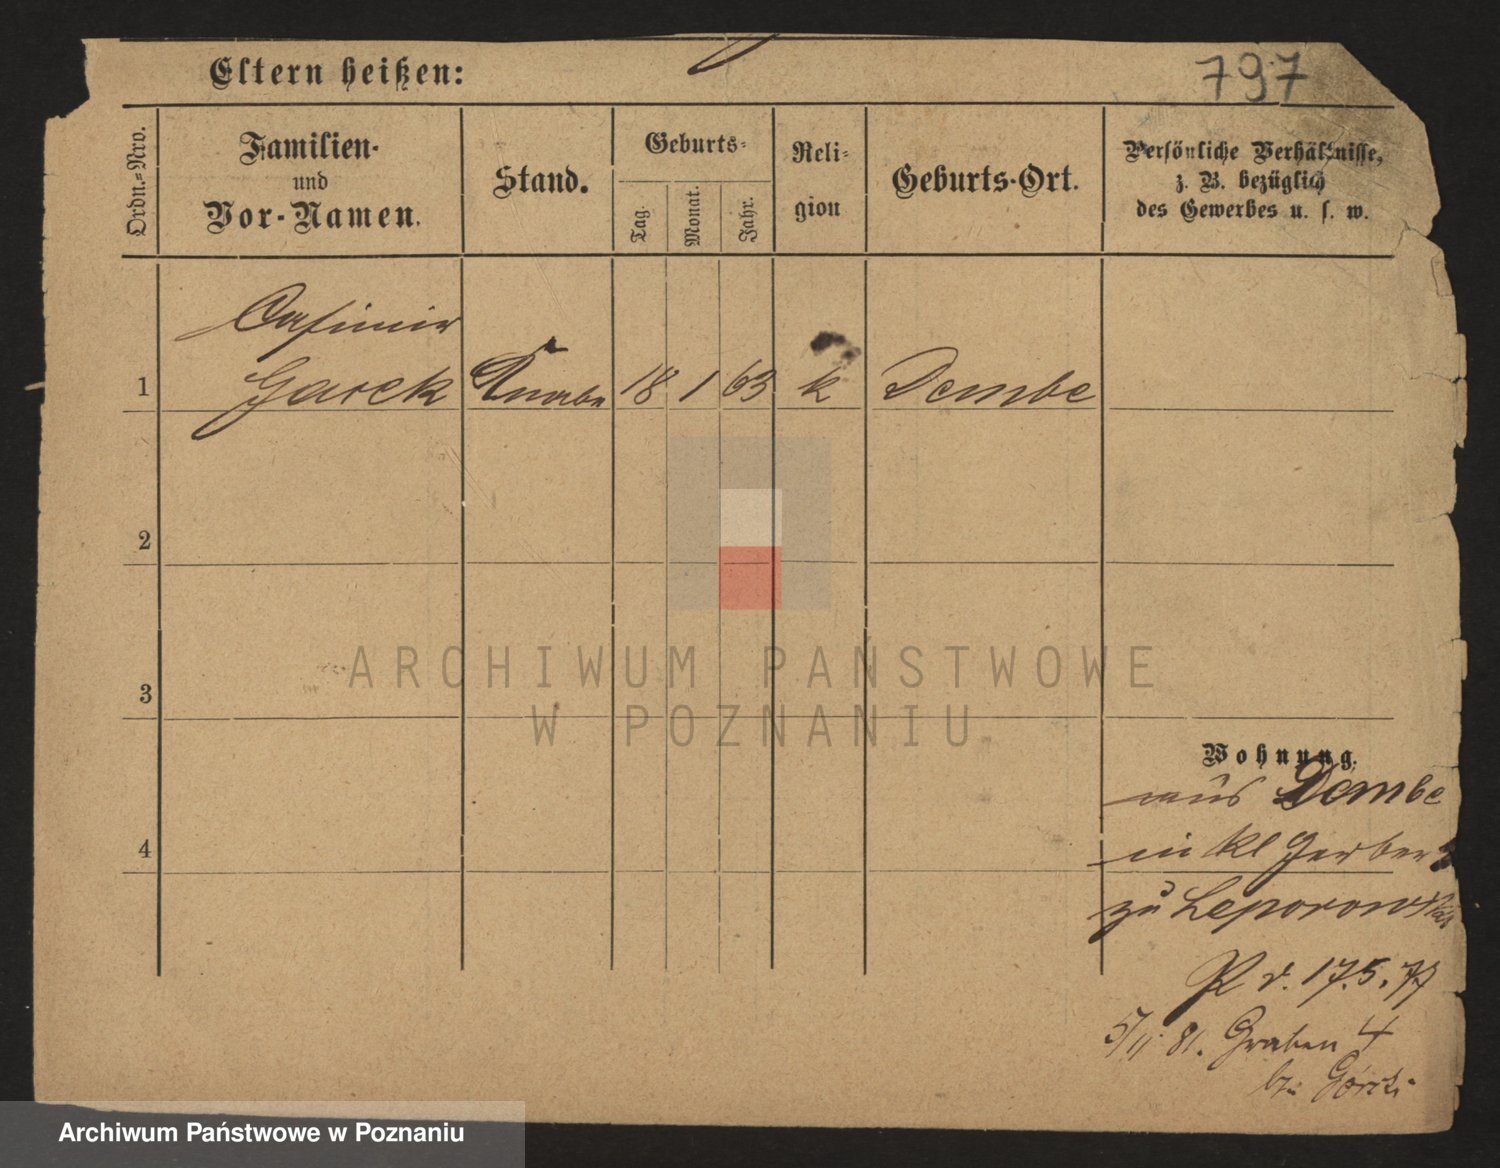 797
Eltern heißen:
Ordn.-Nro.
Familien-
und
Vor-Namen.
Stand.
Geburts-
Tag.
Monat.
Jahr.
Reli-
gion
Geburts-Ort.
Persönliche Verhältnisse,
z. B. bezüglich
des Gewerbes u. s. w.
Casimir
1 Garek Knabe 18 1 63 k Dembe
2
3
4
Wohnung.
aus Dembe
in kl Gerber
zu Leporowski
P d. 17.5.77
5/11 81. Graben 4
bei Górski
ARCHIWUM PAŃSTWOWE
W POZNANIU
Archiwum Państwowe w Poznaniu